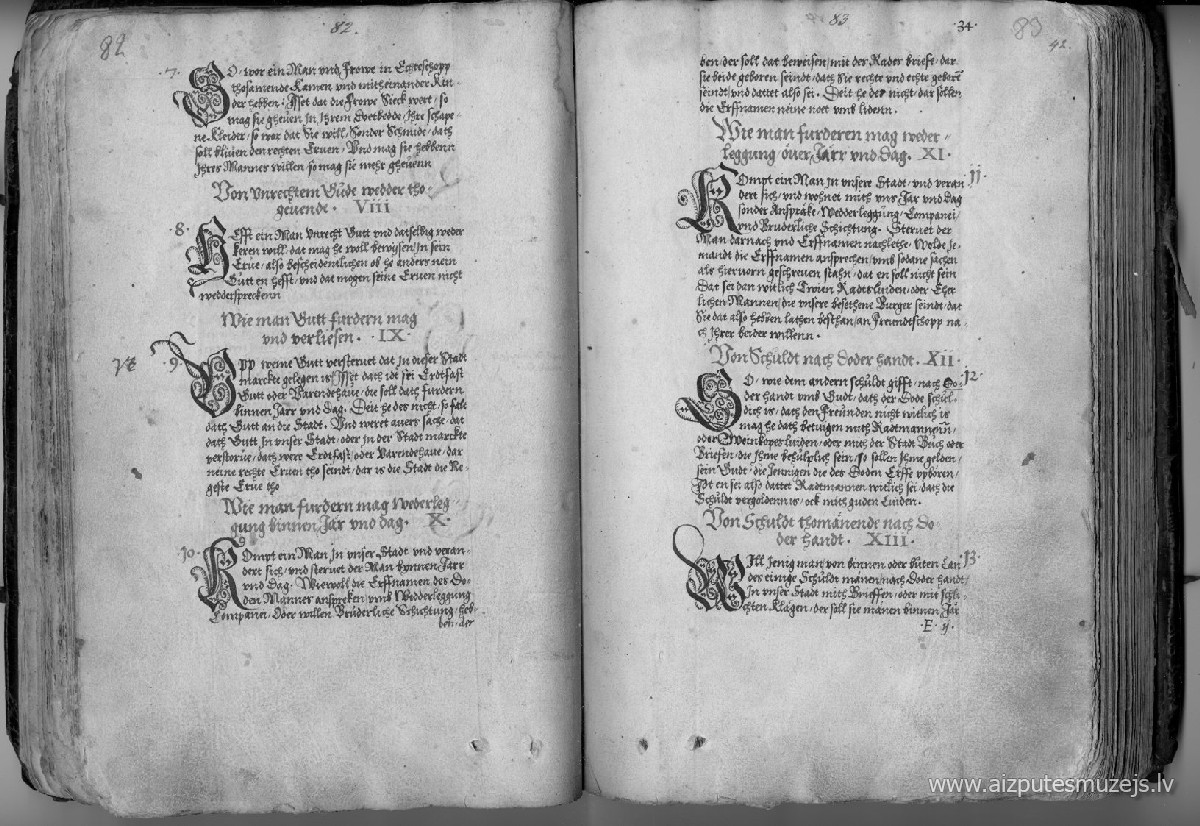 82
82.
7.
SO, wor ein Man vnd Frowe in Echteschopp
thosamende Kamen vnd mitheinander Kin-
der hebben, Isset dat die Frowe Sieck wert, so
mag sie gheuen in Ihrem Doetbedde, Ihre schape-
ne Kleider, so war dat Sie will, Sonder Schmide, dath
soll bliuen den rechten Eruen, Vnd mag sie hebbenn
Ihres Mannes willen, so mag sie mehr gheuenn
Von Vnrechtem Gude wedder tho
geuende. Viii
8.
HEfft ein Man Vnrecht Gutt vnd datselbig weder
keren will, dat mag he woll bewysen, in sein
Erue, also bescheidentlichen ob he anders nein
Gutt en hefft, vnd dat mogen seine Eruen nicht
weddersprekenn
Wie man Gutt furdern mag
vnd verliesen. IX.
9.
weme Gutt versteruet dat in dieser Stadt
marckte gelegen is, Isset dath idt sei Erdtfast
Gutt oder Varendehaue, die soll dath furdern
binnen Jarr vnd Dag. Deit he des nicht, so falt
dath Gutt an die Stadt. Vnd weret auers sache, dat
dath Gutt in vnser Stadt, oder in der Stadt marckte
verstorue, dath were Erdtfast, oder Varendehaue, dar
neine rechte Eruen tho seindt, dar is die Stadt die Ne-
geste Erue tho
Wie man furdern mag Wederleg-
gung binnen Jar vnd dag. X.
10.
KOmpt ein Man in vnser Stadt vnd veran-
dert sich, vnd steruet der Man bynnen Jarr
vnd Dag. Wiewoll die Erffnamen des Do-
den Manner anspreken, vmb Wedderleggung
Companei, Oder willen Brüderliche Schichtung, heb-
ben, der
83
34
83
42.
ben, der soll dat bewisen, mit der Rader briefe, dar
sie beide geboren seindt, dath Sie rechte vnd echte geborē
seindt, vnd dattet also sei. Deit he des nicht, dar sollen
die Erffnamen neine noet vmb lidenn.
Wie man furderen mag weder-
leggung, ouer Jarr vnd Dag. XI.
11.
KOmpt ein Man in vnsere Stadt, vnd veran
dert sich, vnd wohnet mith vns Jar vnd Dag
sonder Ansprake, Wedderleggung, Companei
vnd Bruderliche Schichtung. Steruet der
Man darnach vnd Erffnamen nachlethe, Wolde Je-
mandt die Erffnamen ansprechen, vmb sodane sachen
als hieruorn geschreuen stahn, dat en soll nicht sein
Dat sei dan witlich Twen Radtsluden, oder Eher
lichen Mannen, die vnsere besethene Burger seindt, dat
Sie dat also hebben lathen besthan, an Freundtschopp na-
ch Ihrer beider willenn.
Von Schuldt nach doder handt. XII.
12.
SO, wie dem andern schuldt gifft, nach Do-
der handt vmb Gudt, dath der Dode schul-
dich is, dath den Freunden nicht witlich is
mag he dath betuigen mith Radtmannen,
oder Weinkopesluden, oder mith der Stadt Buch, oder
Briefen, die Ihme behulplich sein, so sollen Ihme gelden,
sein Gudt, die Jennigen die des Doden Erffe vpboren,
Idt en sei also dattet Radtmannen witlich sei, dath die
Schuldt vergoldenn is, ock mith guden Luden.
Von Schuldt thomanende nach Do-
der handt. XIII.
13.
WIll Jenig man von binnen oder buten Lan
des einige Schuldt manen, nach Doder handt,
In vnser Stadt mith Brieffen, oder mit schli-
chten Klagen, der soll sie manen binnen Jar
E ij.
www.aizputesmuzejs.lv